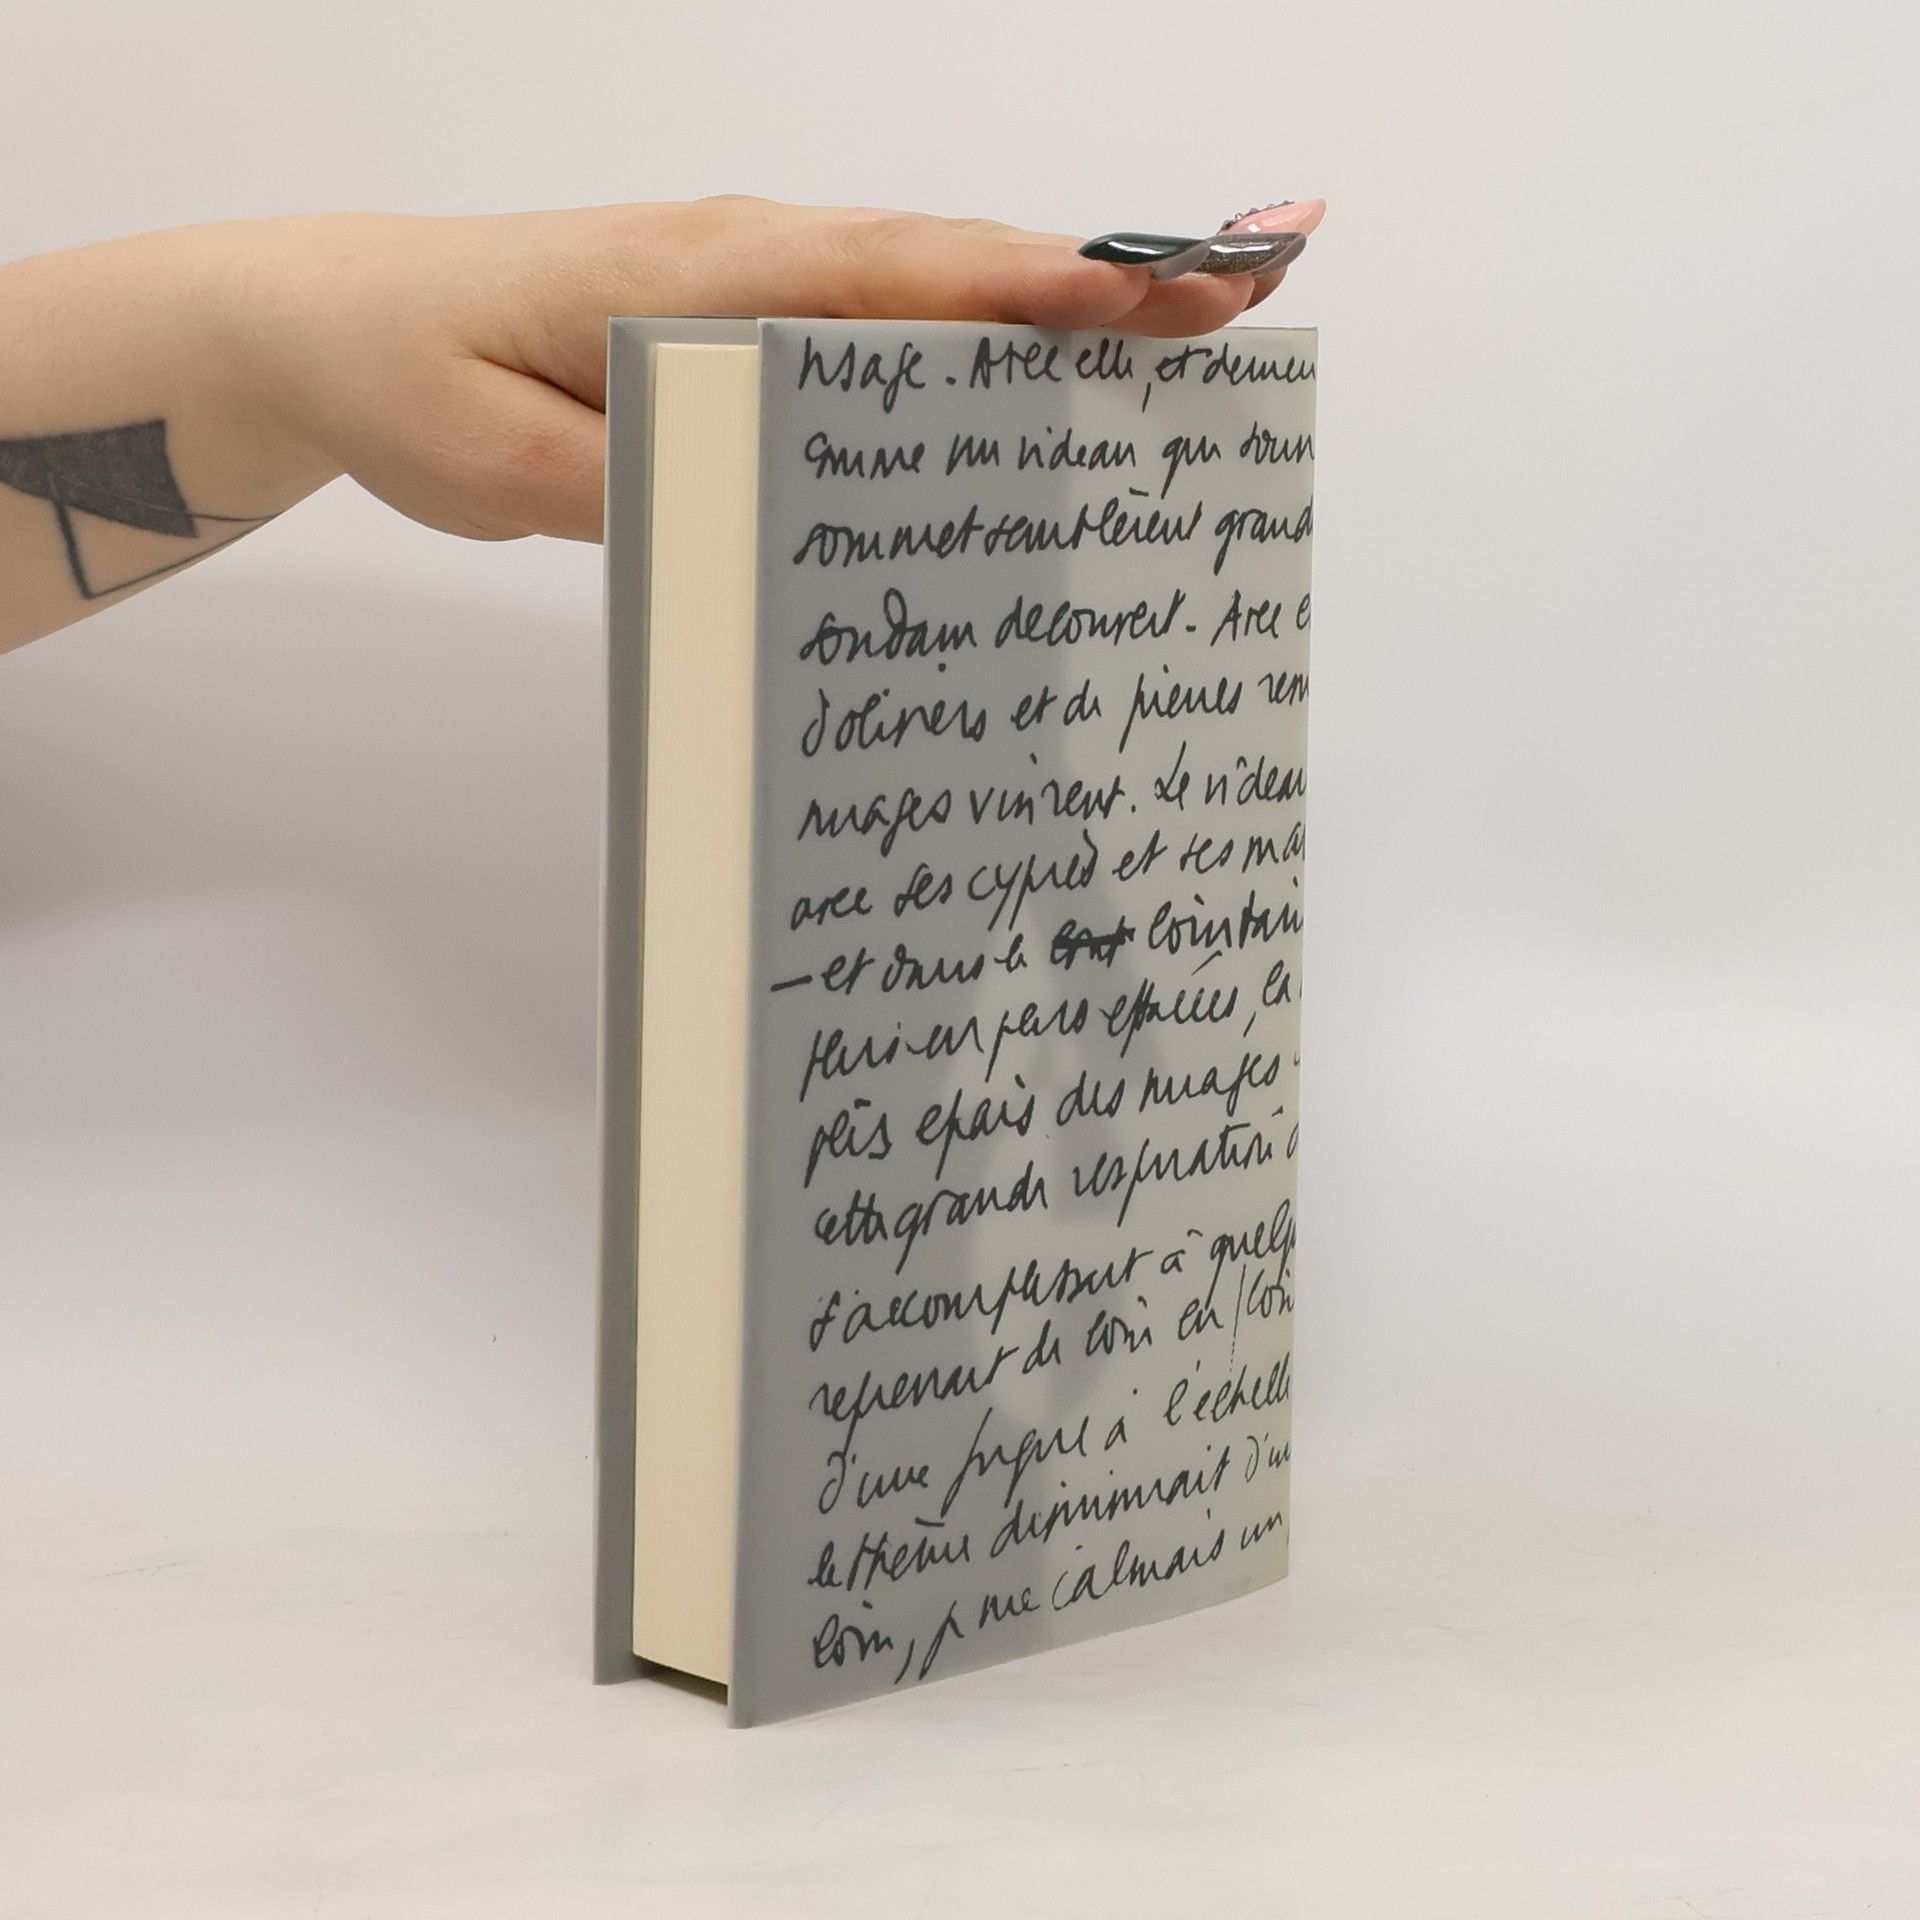 visage. Avec elle, et demeu
comme un rideau qui s'ouv
sommet semblèrent grand
soudain découvert. Avec e
d'oliviers et de pierres rem
nuages vinrent. Le rideau
avec ses cyprès et ses ma
— et dans le lointain
plus en plus effacées, la
plis épais des nuages
cette grande respiration
s'accomplissait à quelq
reprenait de loin en loin
d'une fugue à l'échelle
le thème diminuait d'un
loin, je me calmais un